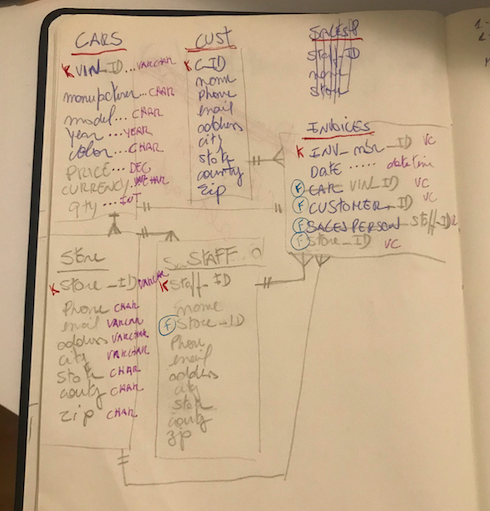 CARS
K VIN_ID ... VARCHAR
manufacturer ... CHAR
model ... CHAR
Year ... YEAR
Color ... CHAR
PRICE ... DEC
CURRENCY
qty ... INT
CUST
K C_ID
name
Phone
email
address
city
state
country
zip
name
store
INVOICES
K INV_nbr_ID VC
DATE ..... datetime
F CAR VIN_ID VC
F CUSTOMER_ID VC
F SALESPERSON_Staff_ID
F Store_ID VC
Store
K Store_ID VARCHAR
Phone CHAR
email VARCHAR
address VARCHAR
city VARCHAR
State CHAR
country CHAR
zip CHAR
STAFF
K Staff_ID
name
F Store_ID
Phone
email
address
city
state
country
zip